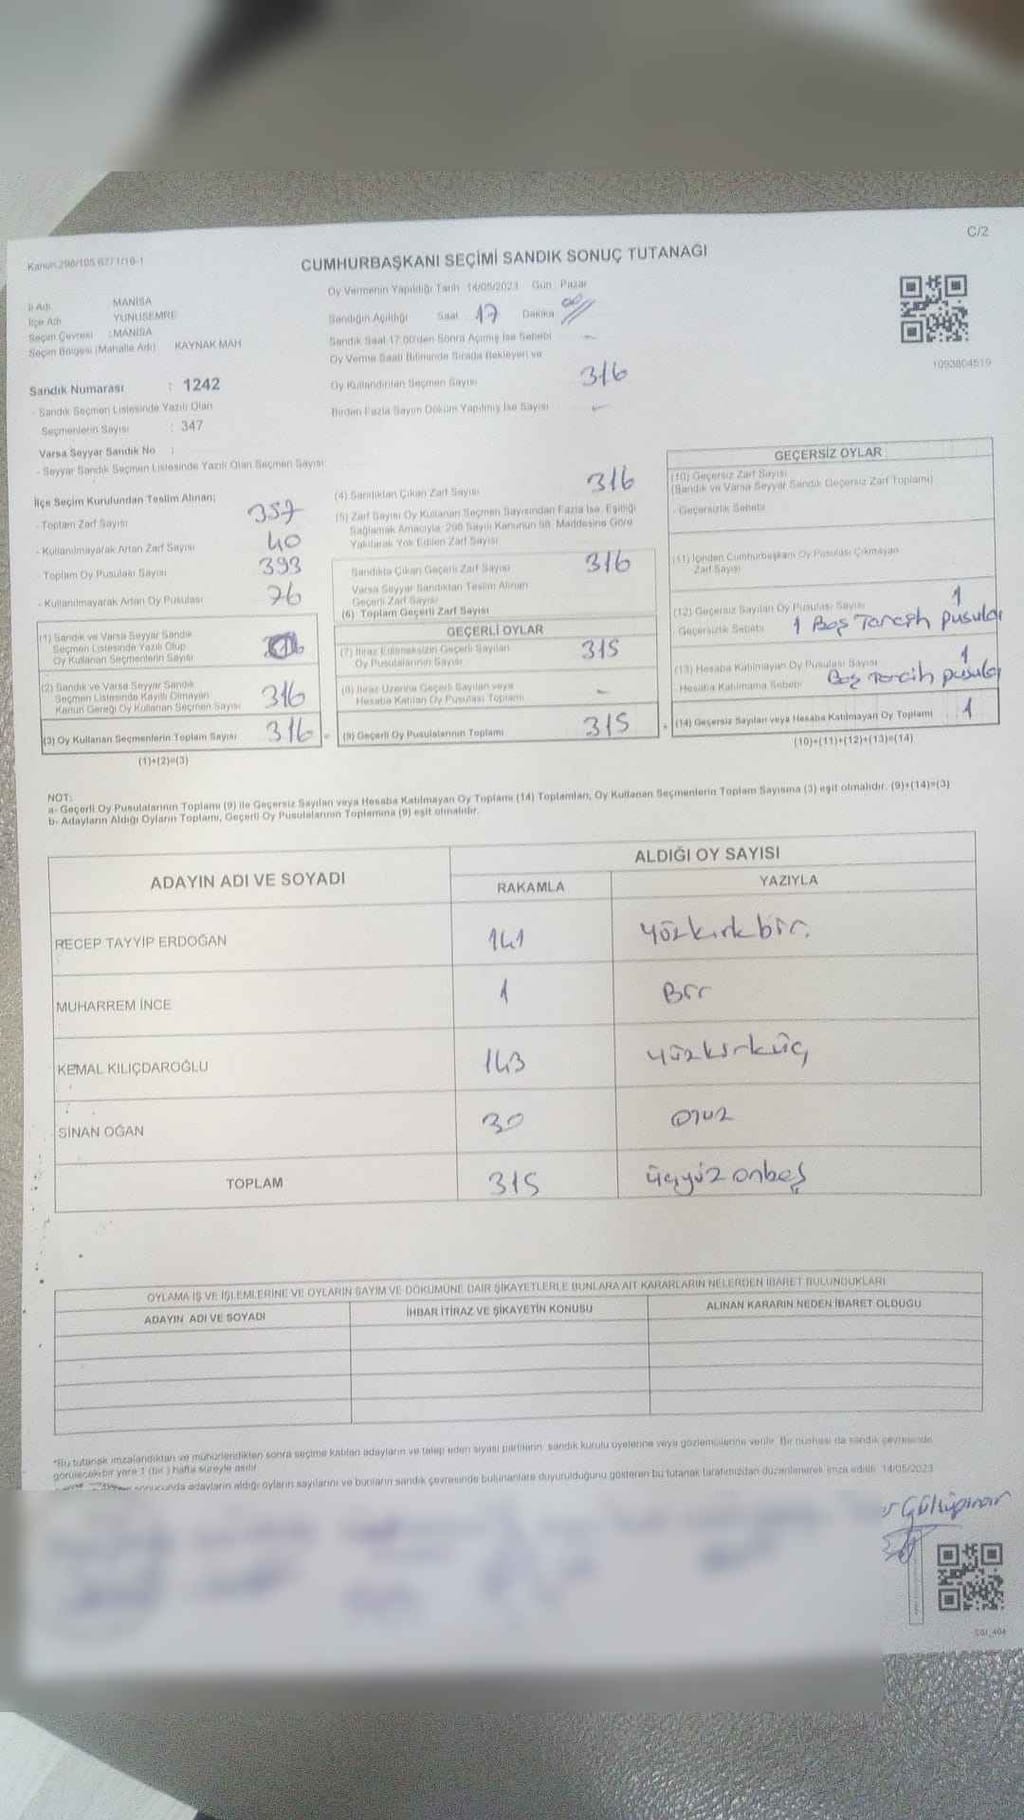 C/2
Kanun 298/105 627/1/10-1
CUMHURBAŞKANI SEÇİMİ SANDIK SONUÇ TUTANAĞI
İl Adı MANİSA
İlçe Adı YUNUSEMRE
Seçim Çevresi :MANİSA
Seçim Bölgesi (Mahalle Adı) KAYNAK MAH
Sandık Numarası : 1242
- Sandık Seçmen Listesinde Yazılı Olan
Seçmenlerin Sayısı : 347
Varsa Seyyar Sandık No :
- Seyyar Sandık Seçmen Listesinde Yazılı Olan Seçmen Sayısı
Oy Vermenin Yapıldığı Tarih 14/05/2023 Gün Pazar
Sandığın Açıldığı Saat 17 Dakika 00
Sandık Saat 17:00'den Sonra Açılmış İse Sebebi -
Oy Verme Saati Bitiminde Sırada Bekleyen ve
Oy Kullandırılan Seçmen Sayısı 316
Birden Fazla Sayım Döküm Yapılmış İse Sayısı -
1093804519
İlçe Seçim Kurulundan Teslim Alınan;
- Toplam Zarf Sayısı 357
- Kullanılmayarak Artan Zarf Sayısı 40
Toplam Oy Pusulası Sayısı 393
- Kullanılmayarak Artan Oy Pusulası 76
(1) Sandık ve Varsa Seyyar Sandık
Seçmen Listesinde Yazılı Olup
Oy Kullanan Seçmenlerin Sayısı
(2) Sandık ve Varsa Seyyar Sandık
Seçmen Listesinde Kayıtlı Olmayan
Kanun Gereği Oy Kullanan Seçmen Sayısı 316
(3) Oy Kullanan Seçmenlerin Toplam Sayısı 316
(1)+(2)=(3)
(4) Sandıktan Çıkan Zarf Sayısı 316
(5) Zarf Sayısı Oy Kullanan Seçmen Sayısından Fazla İse, Eşitliği
Sağlamak Amacıyla, 298 Sayılı Kanunun 98. Maddesine Göre
Yakılarak Yok Edilen Zarf Sayısı
Sandıkta Çıkan Geçerli Zarf Sayısı 316
Varsa Seyyar Sandıktan Teslim Alınan
Geçerli Zarf Sayısı
(6) Toplam Geçerli Zarf Sayısı
GEÇERLİ OYLAR
(7) İtiraz Edilmeksizin Geçerli Sayılan
Oy Pusulalarının Sayısı 315
(8) İtiraz Üzerine Geçerli Sayılan veya
Hesaba Katılan Oy Pusulası Toplamı -
(9) Geçerli Oy Pusulalarının Toplamı 315
GEÇERSİZ OYLAR
(10) Geçersiz Zarf Sayısı
(Sandık ve Varsa Seyyar Sandık Geçersiz Zarf Toplamı)
- Geçersizlik Sebebi
(11) İçinden Cumhurbaşkanı Oy Pusulası Çıkmayan
Zarf Sayısı
(12) Geçersiz Sayılan Oy Pusulası Sayısı 1
Geçersizlik Sebebi 1 Boş Tercih pusula
(13) Hesaba Katılmayan Oy Pusulası Sayısı 1
Hesaba Katılmama Sebebi Boş Tercih pusula
(14) Geçersiz Sayılan veya Hesaba Katılmayan Oy Toplamı 1
(10)+(11)+(12)+(13)=(14)
NOT:
a- Geçerli Oy Pusulalarının Toplamı (9) ile Geçersiz Sayılan veya Hesaba Katılmayan Oy Toplamı (14) Toplamları, Oy Kullanan Seçmenlerin Toplam Sayısına (3) eşit olmalıdır. (9)+(14)=(3)
b- Adayların Aldığı Oyların Toplamı, Geçerli Oy Pusulalarının Toplamına (9) eşit olmalıdır.
ADAYIN ADI VE SOYADI
ALDIĞI OY SAYISI
RAKAMLA YAZIYLA
RECEP TAYYİP ERDOĞAN 141 yüzkırkbir.
MUHARREM İNCE 1 Bir
KEMAL KILIÇDAROĞLU 143 yüzkırküç
SİNAN OĞAN 30 otuz
TOPLAM 315 üçyüz onbeş
OYLAMA İŞ VE İŞLEMLERİNE VE OYLARIN SAYIM VE DÖKÜMÜNE DAİR ŞİKAYETLERLE BUNLARA AİT KARARLARIN NELERDEN İBARET BULUNDUKLARI
ADAYIN ADI VE SOYADI İHBAR İTİRAZ VE ŞİKAYETİN KONUSU ALINAN KARARIN NEDEN İBARET OLDUĞU
*Bu tutanak imzalandıktan ve mühürlendikten sonra seçime katılan adayların ve talep eden siyasi partilerin sandık kurulu üyelerine veya gözlemcilerine verilir. Bir nüshası da sandık çevresinde
görülecebilir yere 1 (bir ) hafta süreyle asılır.
sonucunda adayların aldığı oyların sayılarını ve bunların sandık çevresinde bulunanlara duyurulduğunu gösteren bu tutanak tarafımızdan düzenlenerek imza edildi. 14/05/2023